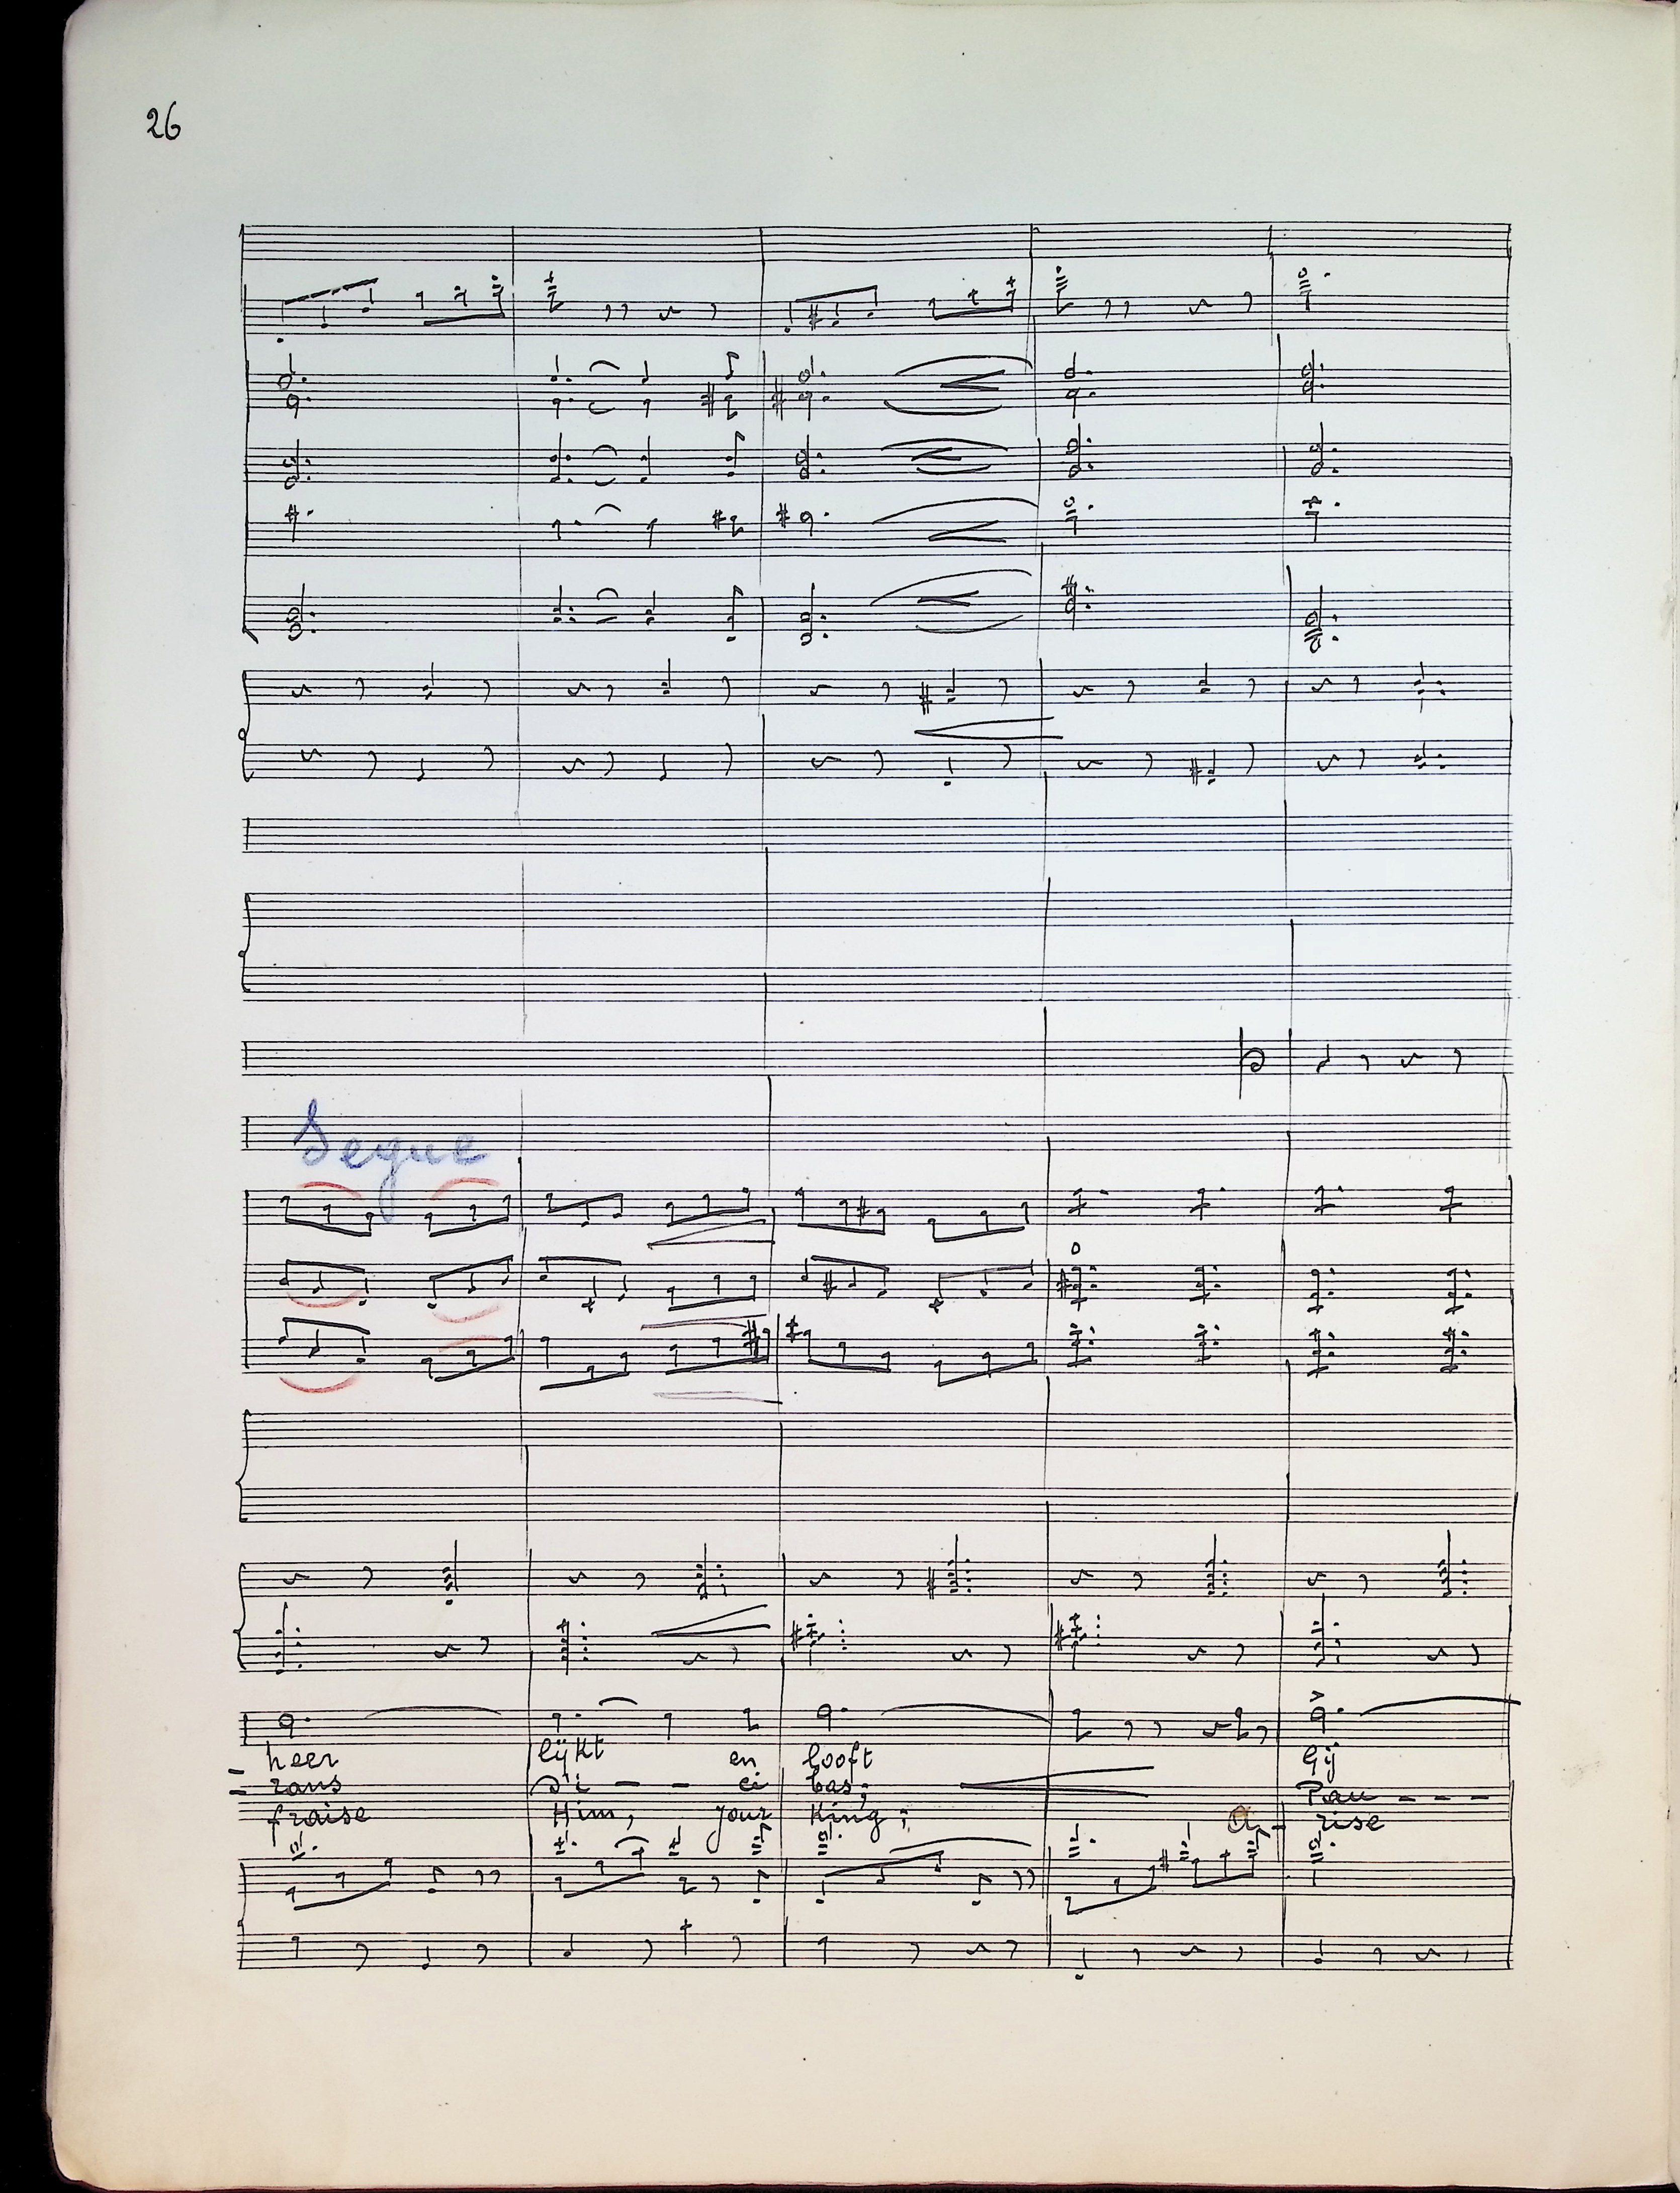 26
Segue
- heer lijkt en looft Gij
- rans d'i - - ci bas; Pau - - -
fraise Him, your King; a- rise